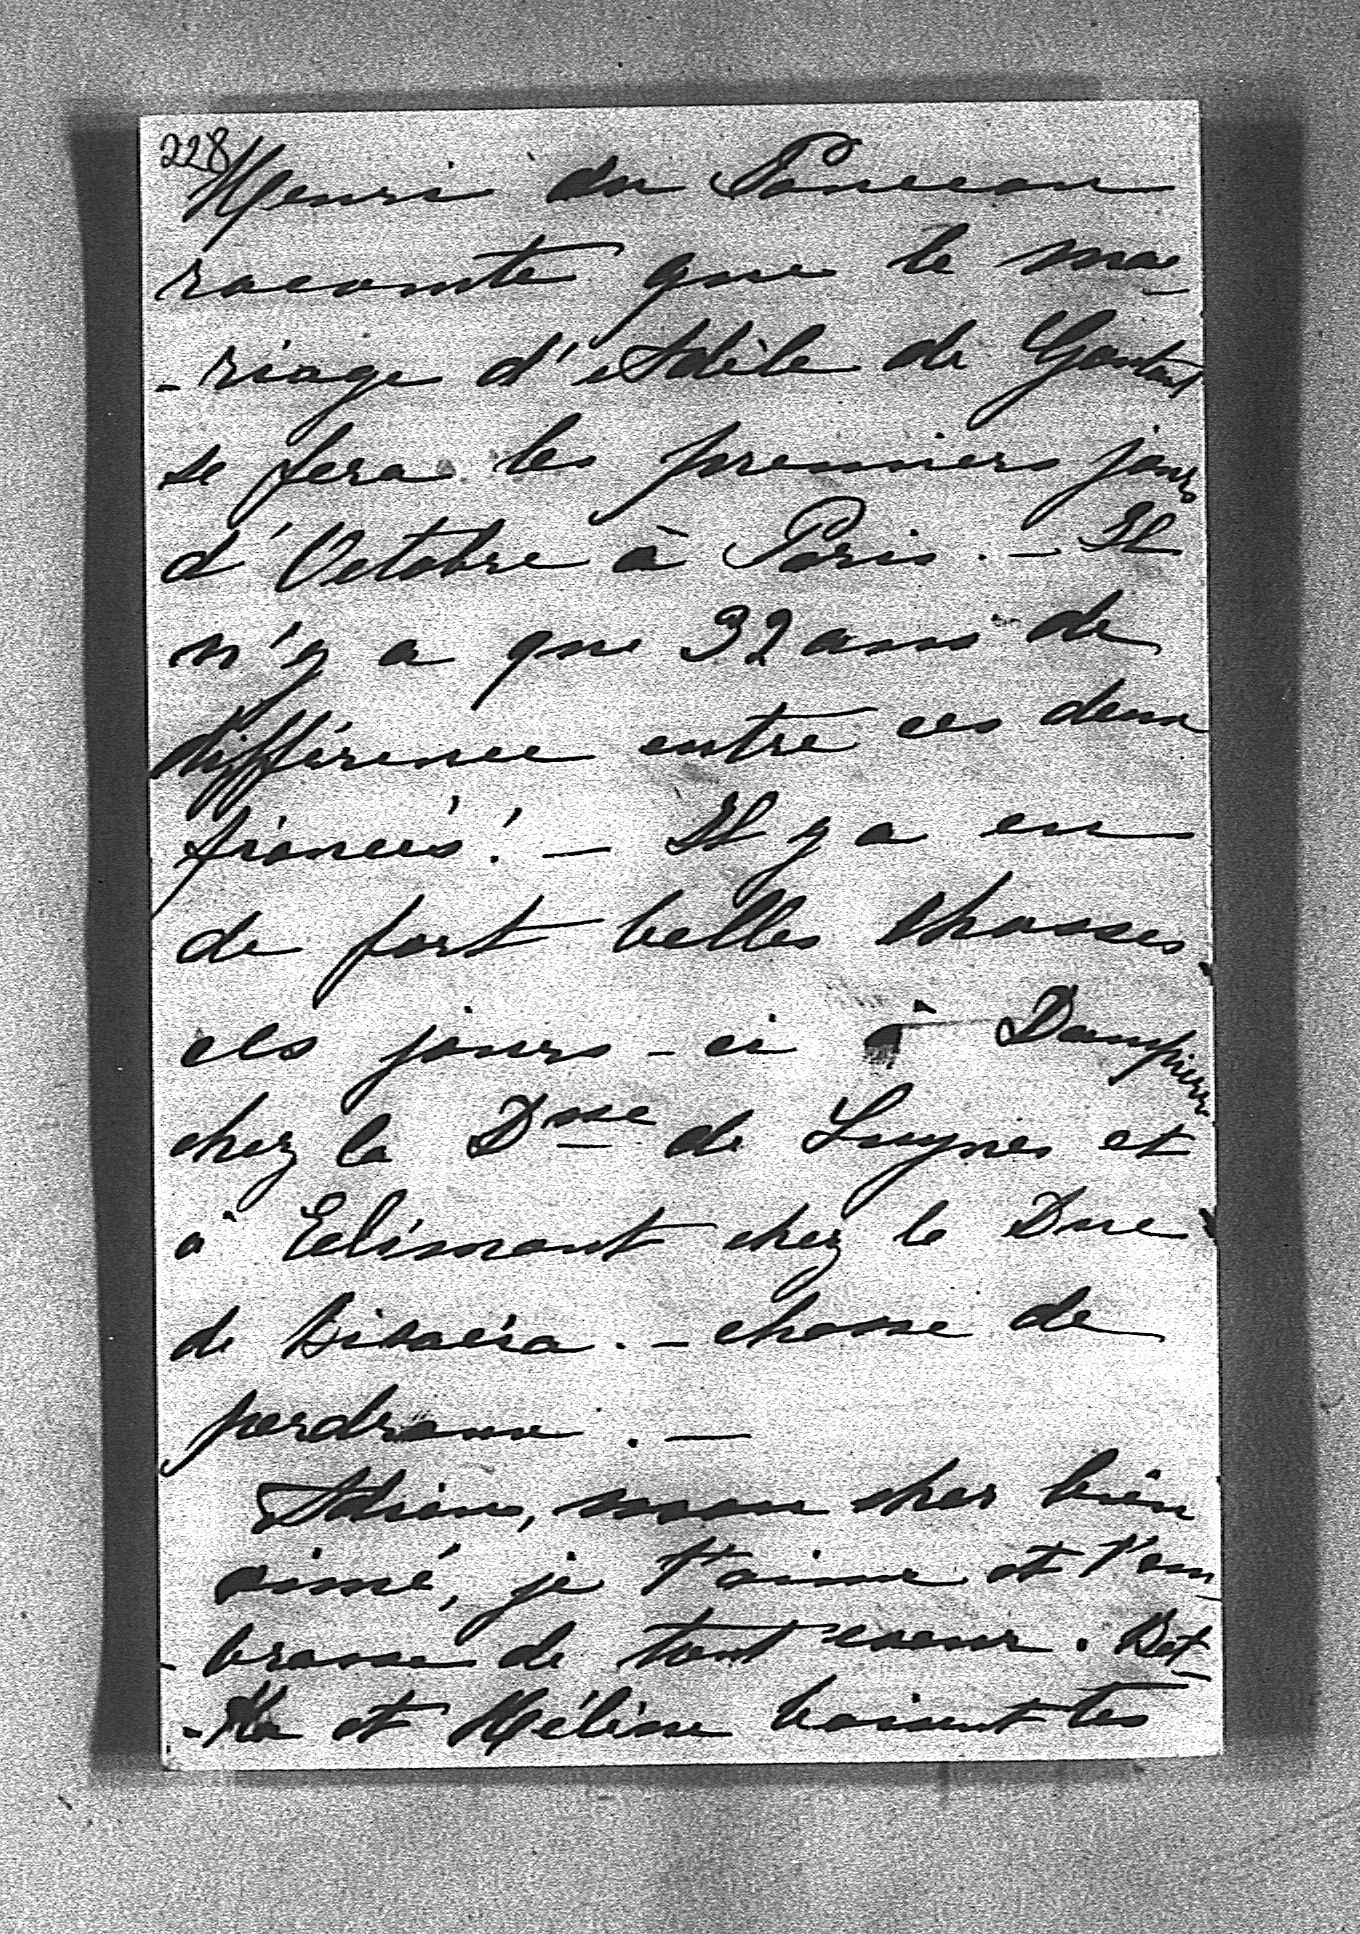 228
Henri du Ponceau
raconte que le ma-
-riage d'Adèle de Gontaut
se fera les premiers jours
d'Octobre à Paris. - Il
n'y a que 32 ans de
différence entre ces deux
fiancés! - Il y a eu
de fort belles chasses
ces jours-ci à Dampierre
chez la Dsse de Luynes et
à Eclimont chez le Duc
de Bisaccia. - chasse de
perdreaux. -
Adieu, mon cher bien
aimé, je t'aime et t'em-
-brasse de tout coeur. Bet-
-tka et Hélène baisent tes